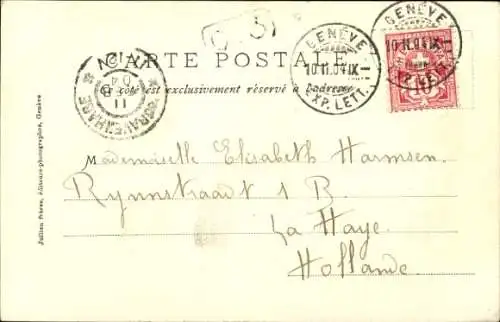 CARTE POSTALE
Ce côté est exclusivement réservé à l'adresse
GENÈVE
10.II.04 IX
EXP. LETT.
GENÈVE
10.II.04 IX
EXP. LETT.
10
'S GRAVENHAGE
11
04
Mademoiselle Elisabeth Harmsen.
Rynnstraat 1 B.
La Haye.
Hollande.
Jullien frères, éditeurs-photographes, Genève